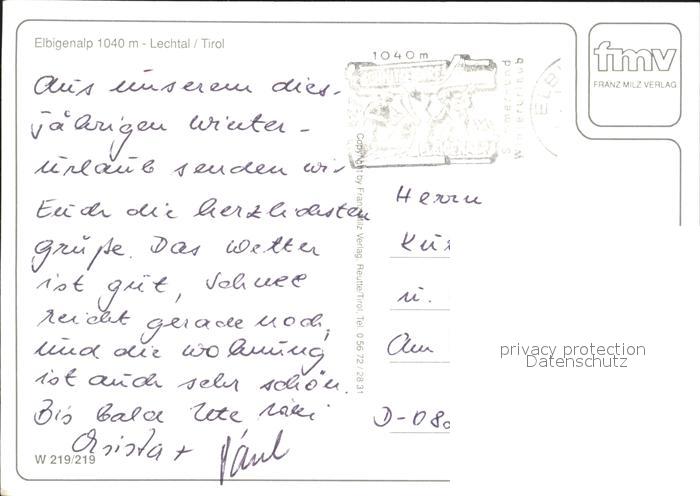 Elbigenalp 1040 m - Lechtal / Tirol
Aus unserem dies-
jährigen Winter-
urlaub senden wir
Euch die herzlichsten
Grüße. Das Wetter
ist gut, Schnee
reicht gerade noch,
und die Wohnung
ist auch sehr schön.
Bis bald Eure
Christa + Paul
W 219/219
Copyright by Franz Milz Verlag, Reutte/Tirol, Tel. 0 56 72 / 28 31
1040 m
Sommer und
Winterurlaub
ELBI
fmv
FRANZ MILZ VERLAG
Herrn
Kur
u.
Am
D-080
privacy protection
Datenschutz